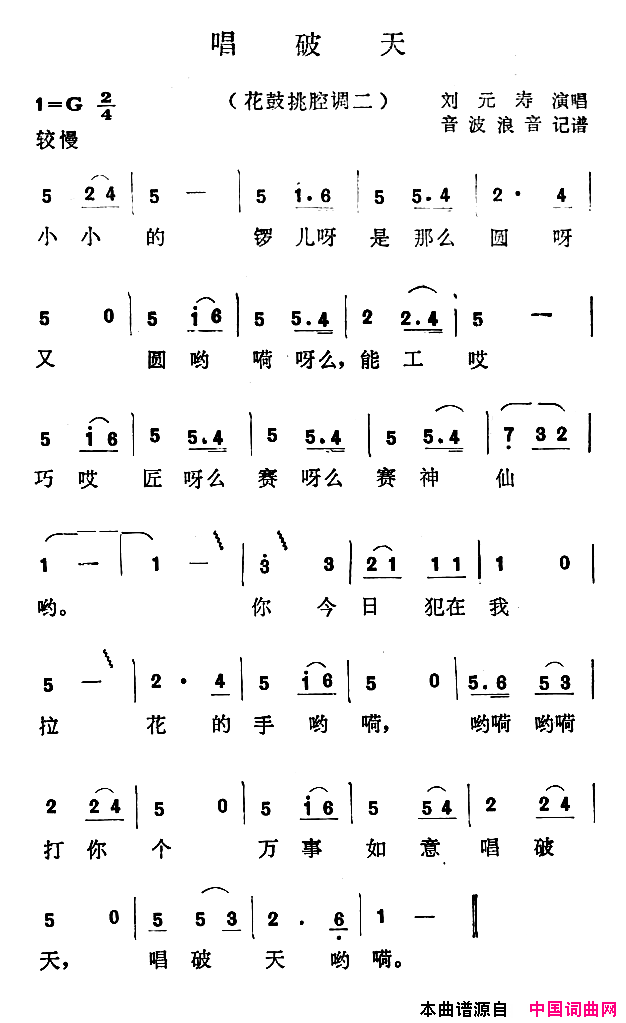 唱破天
1=G 2/4 （花鼓挑腔调二） 刘元寿 演唱
较慢 音波浪音 记谱
5 2 4 | 5 — | 5 1.6 | 5 5.4 | 2· 4 |
小小的 锣儿呀是那么圆呀
5 0 | 5 i 6 | 5 5.4 | 2 2.4 | 5 — |
又 圆哟嗬呀么，能工哎
5 i 6 | 5 5.4 | 5 5.4 | 5 5.4 | 7 3 2 |
巧哎匠呀么赛呀么赛神仙
1 — | 1 — | 3 3 | 2 1 1 1 | 1 0 |
哟。 你今日犯在我
5 — | 2· 4 | 5 i 6 | 5 0 | 5.6 5 3 |
拉花的手哟嗬，哟嗬哟嗬
2 2 4 | 5 0 | 5 i 6 | 5 5 4 | 2 2 4 |
打你个 万事如意唱破
5 0 | 5 5 3 | 2· 6 | 1 — ‖
天， 唱破天哟嗬。
本曲谱源自 中国词曲网